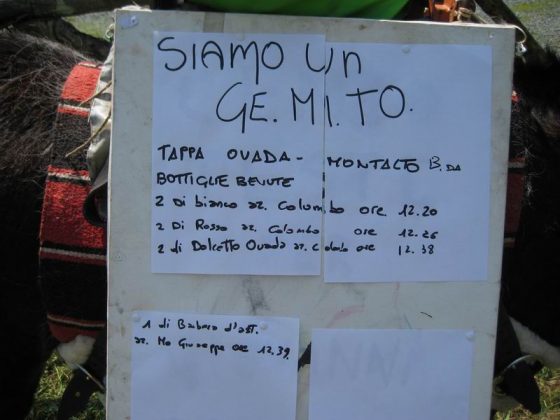 SIAMO UN
GE.MI.TO.
TAPPA OVADA - MONTALTO B.DA
BOTTIGLIE BEVUTE
2 Di bianco az. Colombo ore 12.20
2 Di Rosso az. Colombo ore 12.26
2 di Dolcetto Ovada az. Colombo ore 12.38
1 di Barbera d'Ast.
az. Mo Giuseppe ore 12.39